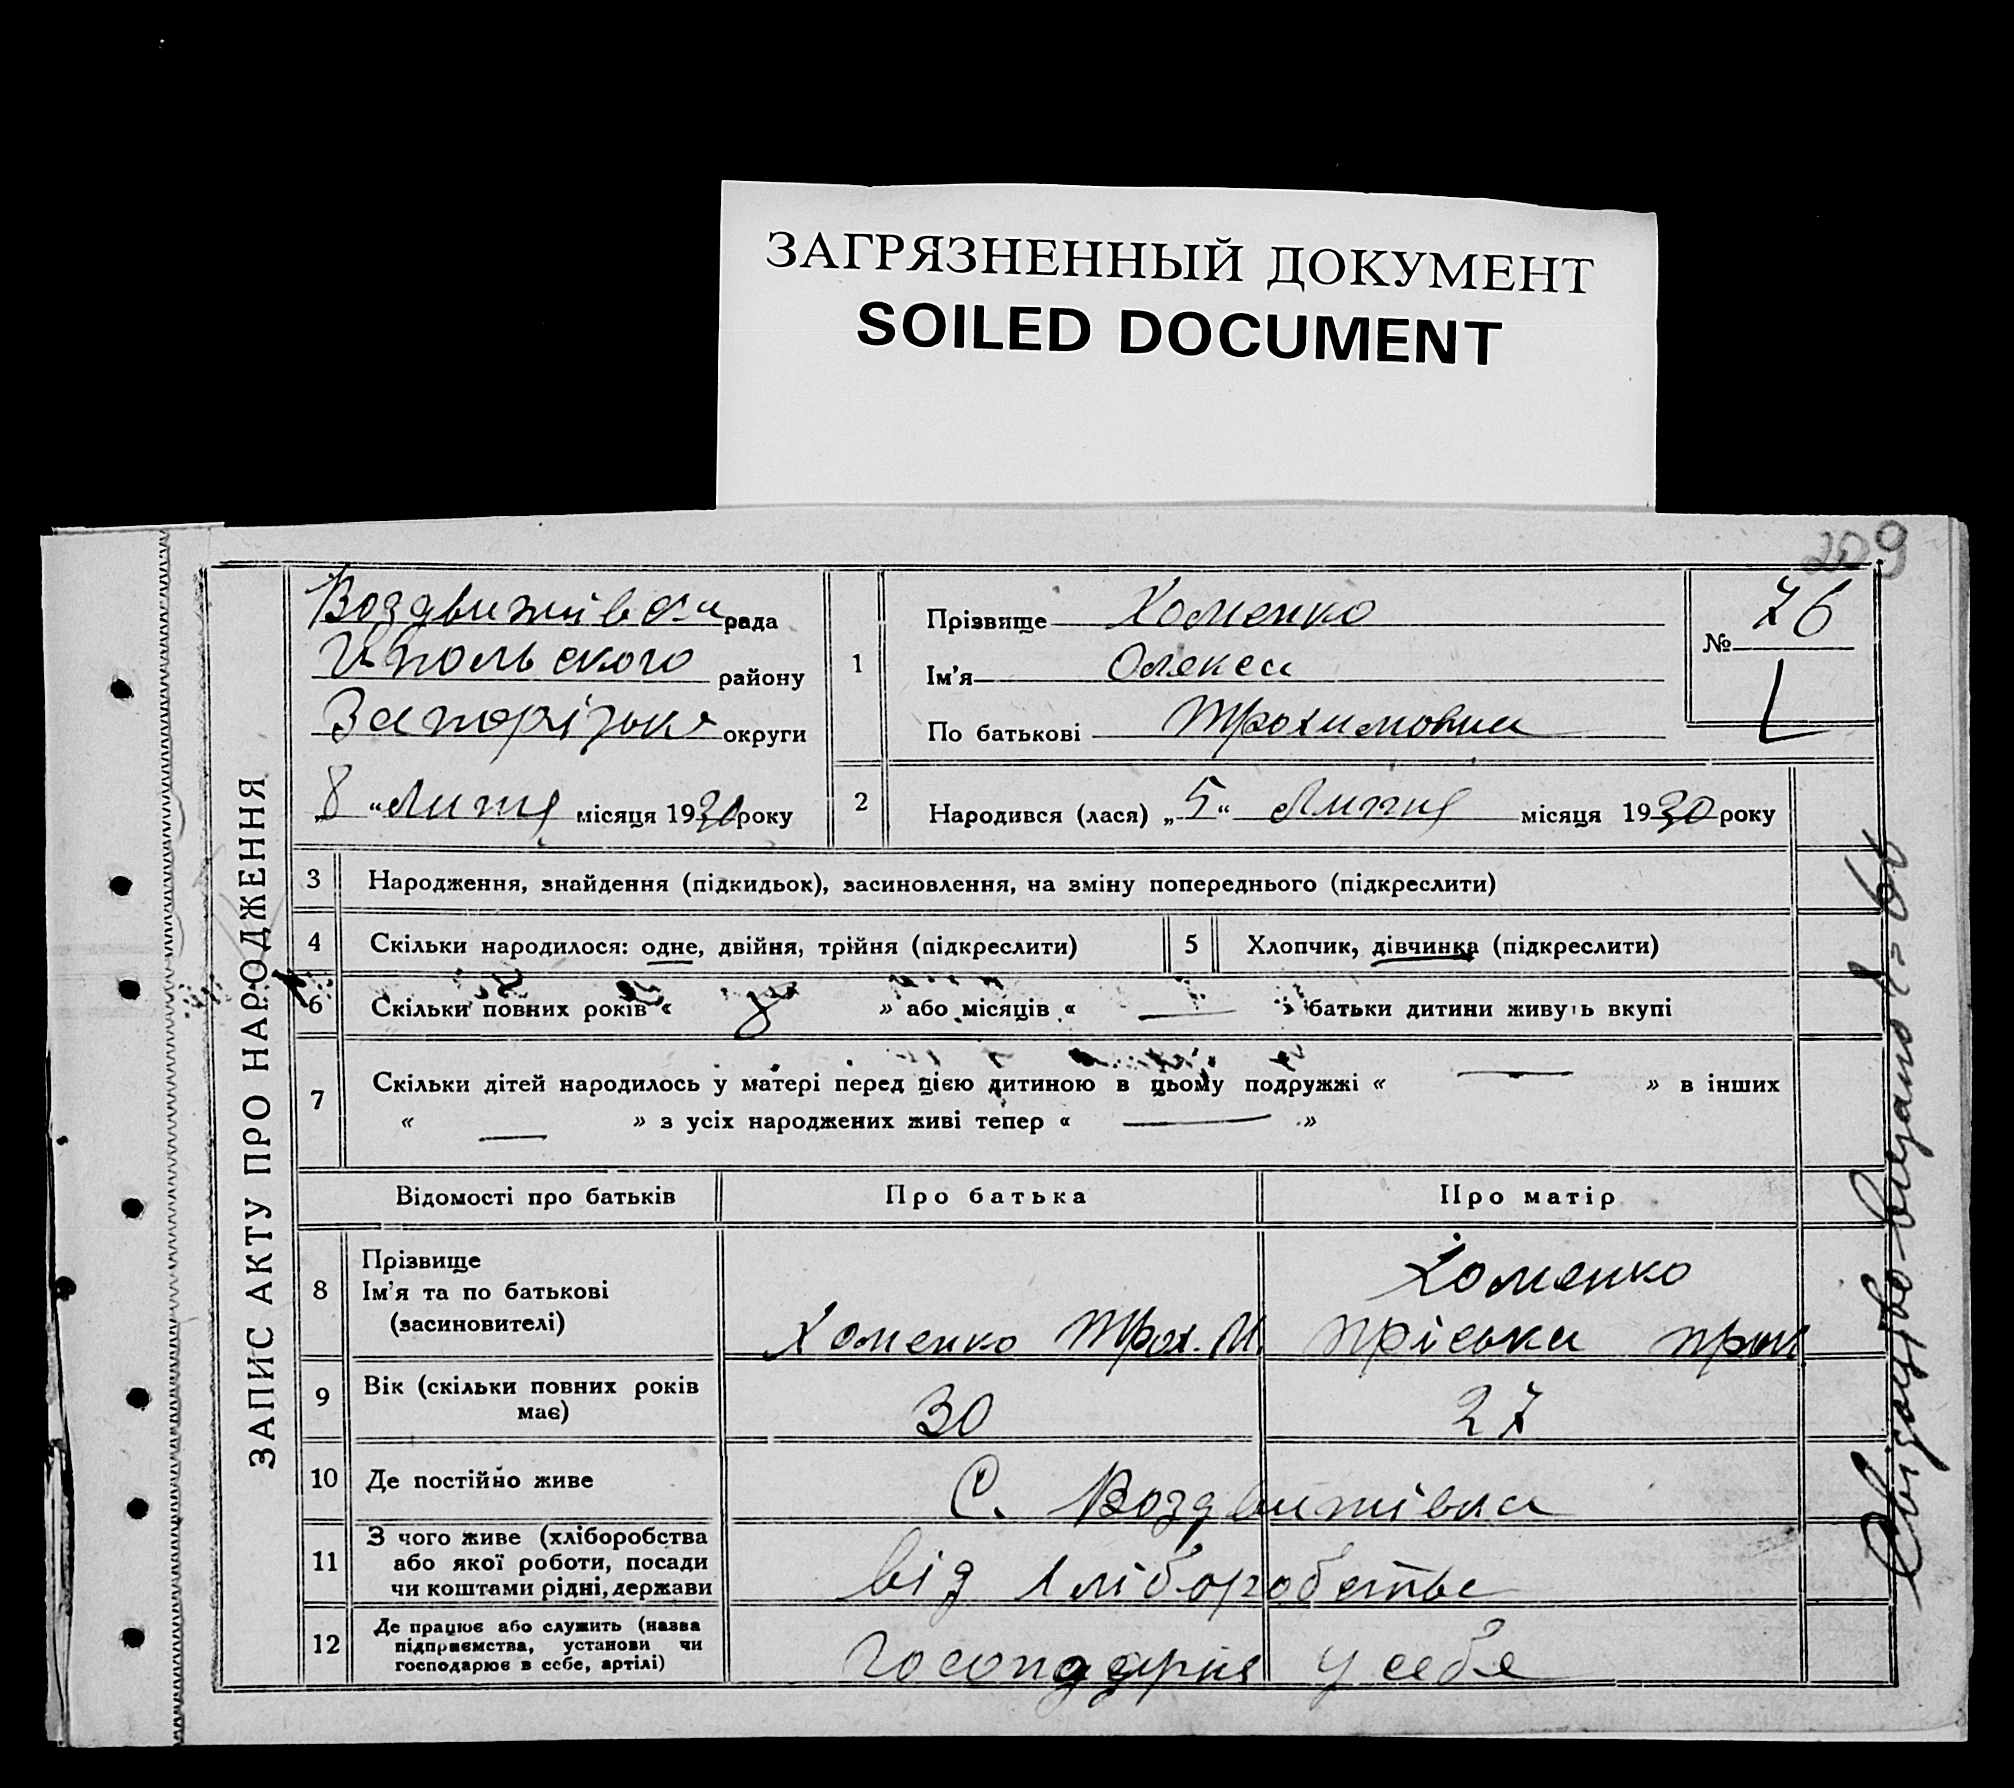 ЗАГРЯЗНЕННЫЙ ДОКУМЕНТ
SOILED DOCUMENT
209
ЗАПИС АКТУ ПРО НАРОДЖЕННЯ
Воздвижівська рада
Г-Польского району
Запорізьк округи
„8“ Липня місяця 1930 року
1
Прізвище Хоменко
Ім'я Олекса
По батькові Трохимовна
№ 76
2 Народився (лася) „5“ Липня місяця 1930 року
3 Народження, знайдення (підкидьок), засиновлення, на зміну попереднього (підкреслити)
4 Скільки народилося: одне, двійня, трійня (підкреслити) 5 Хлопчик, дівчинка (підкреслити)
6 Скільки повних років « 8 » або місяців « — » батьки дитини живуть вкупі
7 Скільки дітей народилось у матері перед цією дитиною в цьому подружжі « — » в інших
« — » з усіх народжених живі тепер « — »
Відомості про батьків Про батька Про матір
8 Прізвище
Ім'я та по батькові
(засиновителі)
Хоменко Трох. И.
Хоменко
Пріська Прок
9 Вік (скільки повних років
має)
30 27
10 Де постійно живе С. Воздвижівка
11 З чого живе (хліборобства
або якої роботи, посади
чи коштами рідні, держави
від хліборобства
12 Де працює або служить (назва
підприємства, установи чи
господарює в себе, артілі)
Господарня у себе
Свідоцтво видано